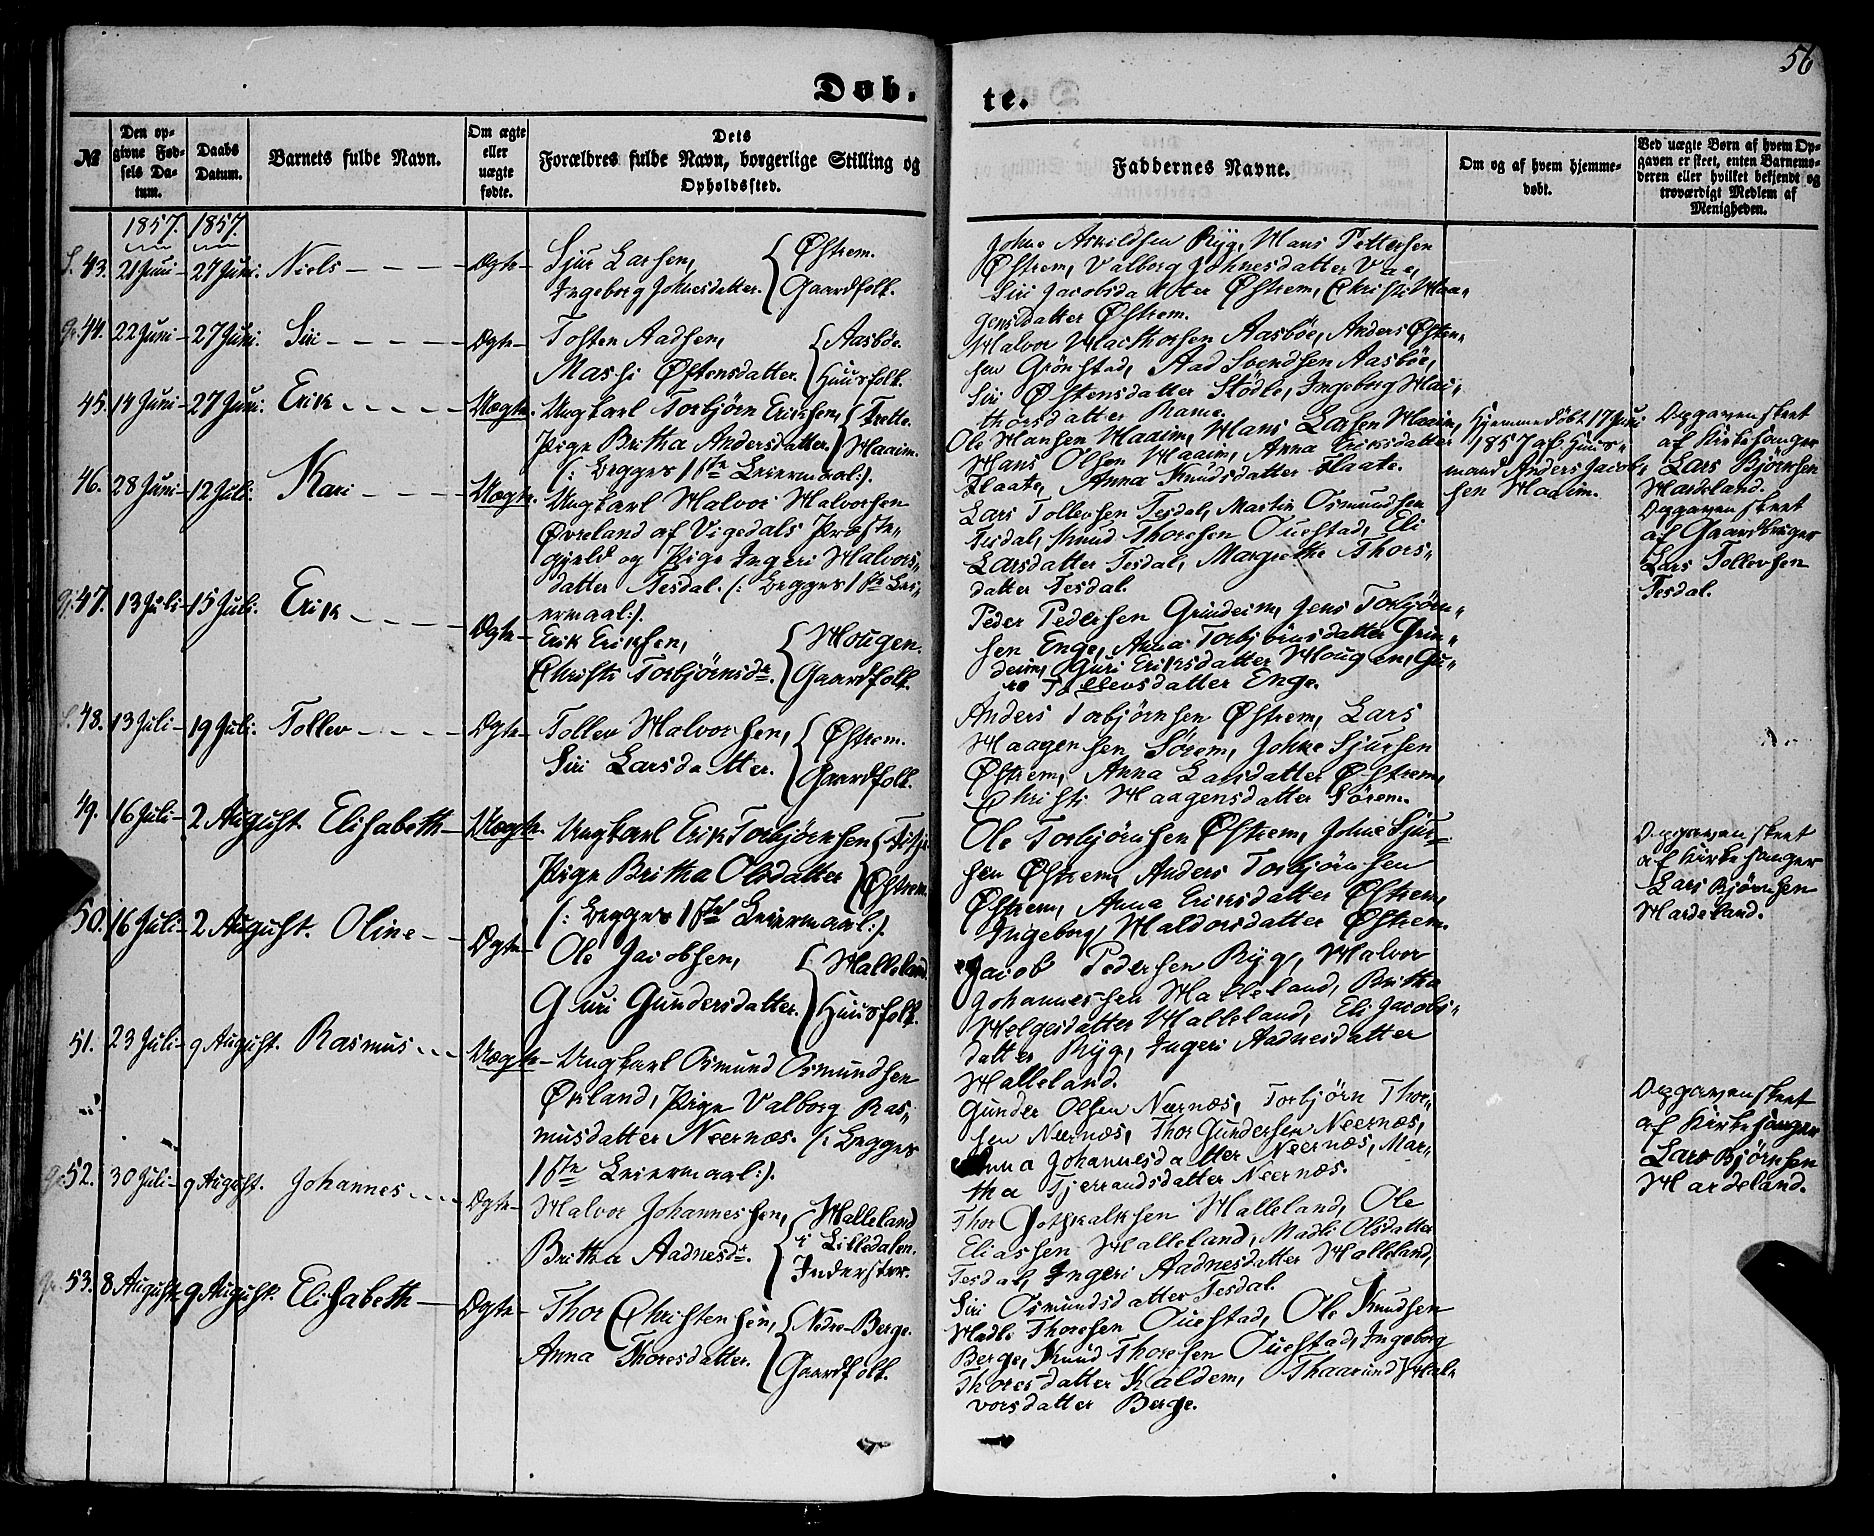 56
Døb. te.
№
Den opgivne Fødsels Datum.
Daabs Datum.
Barnets fulde Navn.
Om ægte eller uægte fødte.
Dets Forældres fulde Navn, borgerlige Stilling og Opholdssted.
Faddernes Navne.
Om og af hvem hjemmedøbt.
Ved uægte Børn af hvem Opgaven er skeet, enten Barnemoderen eller hvilket bekjendt og troværdigt Medlem af Menigheden.
1857. 1857.
43. 21 Juni 27 Juni. Niels Ægte
Sjur Larsen, Østrem.
Ingeborg Johnesdatter. Gaardfolk.
Johne Askildsen Ryg, Hans Pettersen
Østrem, Valborg Johnesdatter Vae,
Siri Jacobsdatter Østrem, Christi Haa„
gensdatter Østrem.
44. 22 Juni 27 Juni. Siri Ægte
Tosten Aadsen, Aasbøe.
Massi Østensdatter. Huusfolk.
Halvor Halthorsen Aasbøe, Anders Østen„
sen Grönstad, Aad Svendsen Aasbøe,
Siri Østensdatter Stödle, Ingeborg Hal„
thorsdatter Rame.
45. 14 Juni 27 Juni. Erik Uægte.
Ungkarl Torbjörn Eriksen, Frette.
Pige Britha Andersdatter. Haaim.
(: Begges 1ste Leiermaal:).
Ole Hansen Haaim, Hans Larsen Haaim,
Hans Olsen Haaim, Anna Eriksdatter
Flaate, Anna Knudsdatter Flaate.
Hjemmedöbt 17 Juni
1857 af Huus„
mand Anders Jacob„
sen Haaim.
Opgaven skeet
af Kirkesanger
Lars Bjørnsen
Hardeland.
46. 28 Juni 12 Juli. Kari Uægte.
Ungkarl Halvor Halvorsen
Øvreland af Vigedals Præste„
gjeld og Pige Ingeri Halvors„
datter Tesdal. (: Begges 1ste Lei„
ermaal:).
Lars Tollevsen Tesdal, Martin Osmundsen
Tesdal, Knud Thoresen Ouestad, Eli
Larsdatter Tesdal, Margrethe Thors„
datter Tesdal.
Opgaven skeet
af Gaardbruger
Lars Tollevsen
Tesdal.
47. 13 Juli 15 Juli. Erik Ægte
Erik Eriksen, Hougen.
Christi Torbjörnsdr. Gaardfolk.
Peder Pedersen Grindeim, Jens Torbjörn„
sen Enge, Anna Torbjörnsdatter Grin„
deim, Guri Eriksdatter Hougen, Gu„
ro Tollevsdatter Enge.
48. 13 Juli 19 Juli. Tollev Ægte
Tollev Halvorsen, Østrem.
Siri Larsdatter. Gaardfolk.
Anders Torbjörnsen Østrem, Lars
Haagensen Sörem, Johne Sjursen
Østrem, Anna Larsdatter Østrem,
Christi Haagensdatter Sörem.
49. 16 Juli 2 August. Elisabeth Uægte.
Ungkarl Erik Torbjörnsen Fitje
Pige Britha Olsdatter Østrem.
(: Begges 1ste Leiermaal:).
Ole Torbjörnsen Østrem, Johne Sjur„
sen Østrem, Anders Torbjörnsen
Østrem, Anna Eriksdatter Østrem,
Ingeborg Haldorsdatter Østrem.
Opgaven skeet
af Kirkesanger
Lars Bjørnsen
Hardeland.
50. 16 Juli 2 August. Oline Ægte
Ole Jacobsen, Halleland.
Guri Gundersdatter. Huusfolk.
Jacob Pedersen Ryg, Halvor
Johannessen Halleland, Britha
Helgesdatter Halleland, Eli Jacobs„
datter Ryg, Ingeri Aadnesdatter
Halleland.
51. 23 Juli 9 August. Rasmus Uægte
Ungkarl Osmund Osmundsen
Ørland, Pige Valborg Ras„
musdatter Neernæs. (: Begges
1ste Leiermaal:).
Gunder Olsen Nærnæs, Torbjörn Thor„
sen Neernæs, Thor Gundersen Neernæs,
Anna Johannesdatter Neernæs, Mar„
tha Tjerrandsdatter Neernæs.
Opgaven skeet
af Kirkesanger
Lars Bjørnsen
Hardeland.
52. 30 Juli 9 August. Johannes Ægte
Halvor Johannessen, Halleland
Britha Aadnesdr. i Lilledalen.
Inderster.
Thor Gotskalksen Halleland, Ole
Eliassen Halleland, Madli Olsdatter
Tesdal, Ingeri Aadnesdatter Halleland,
Siri Osmundsdatter Tesdal.
53. 8 August 9 August. Elisabeth Ægte
Thor Christensen, Nedre-Berge.
Anna Thoresdatter. Gaardfolk.
Thoresen Ouestad, Ole Knudsen
Berge, Knud Thoresen Ouestad, Ingeborg
Thoresdatter Kaldem, Hal„
vorsdatter Berge.